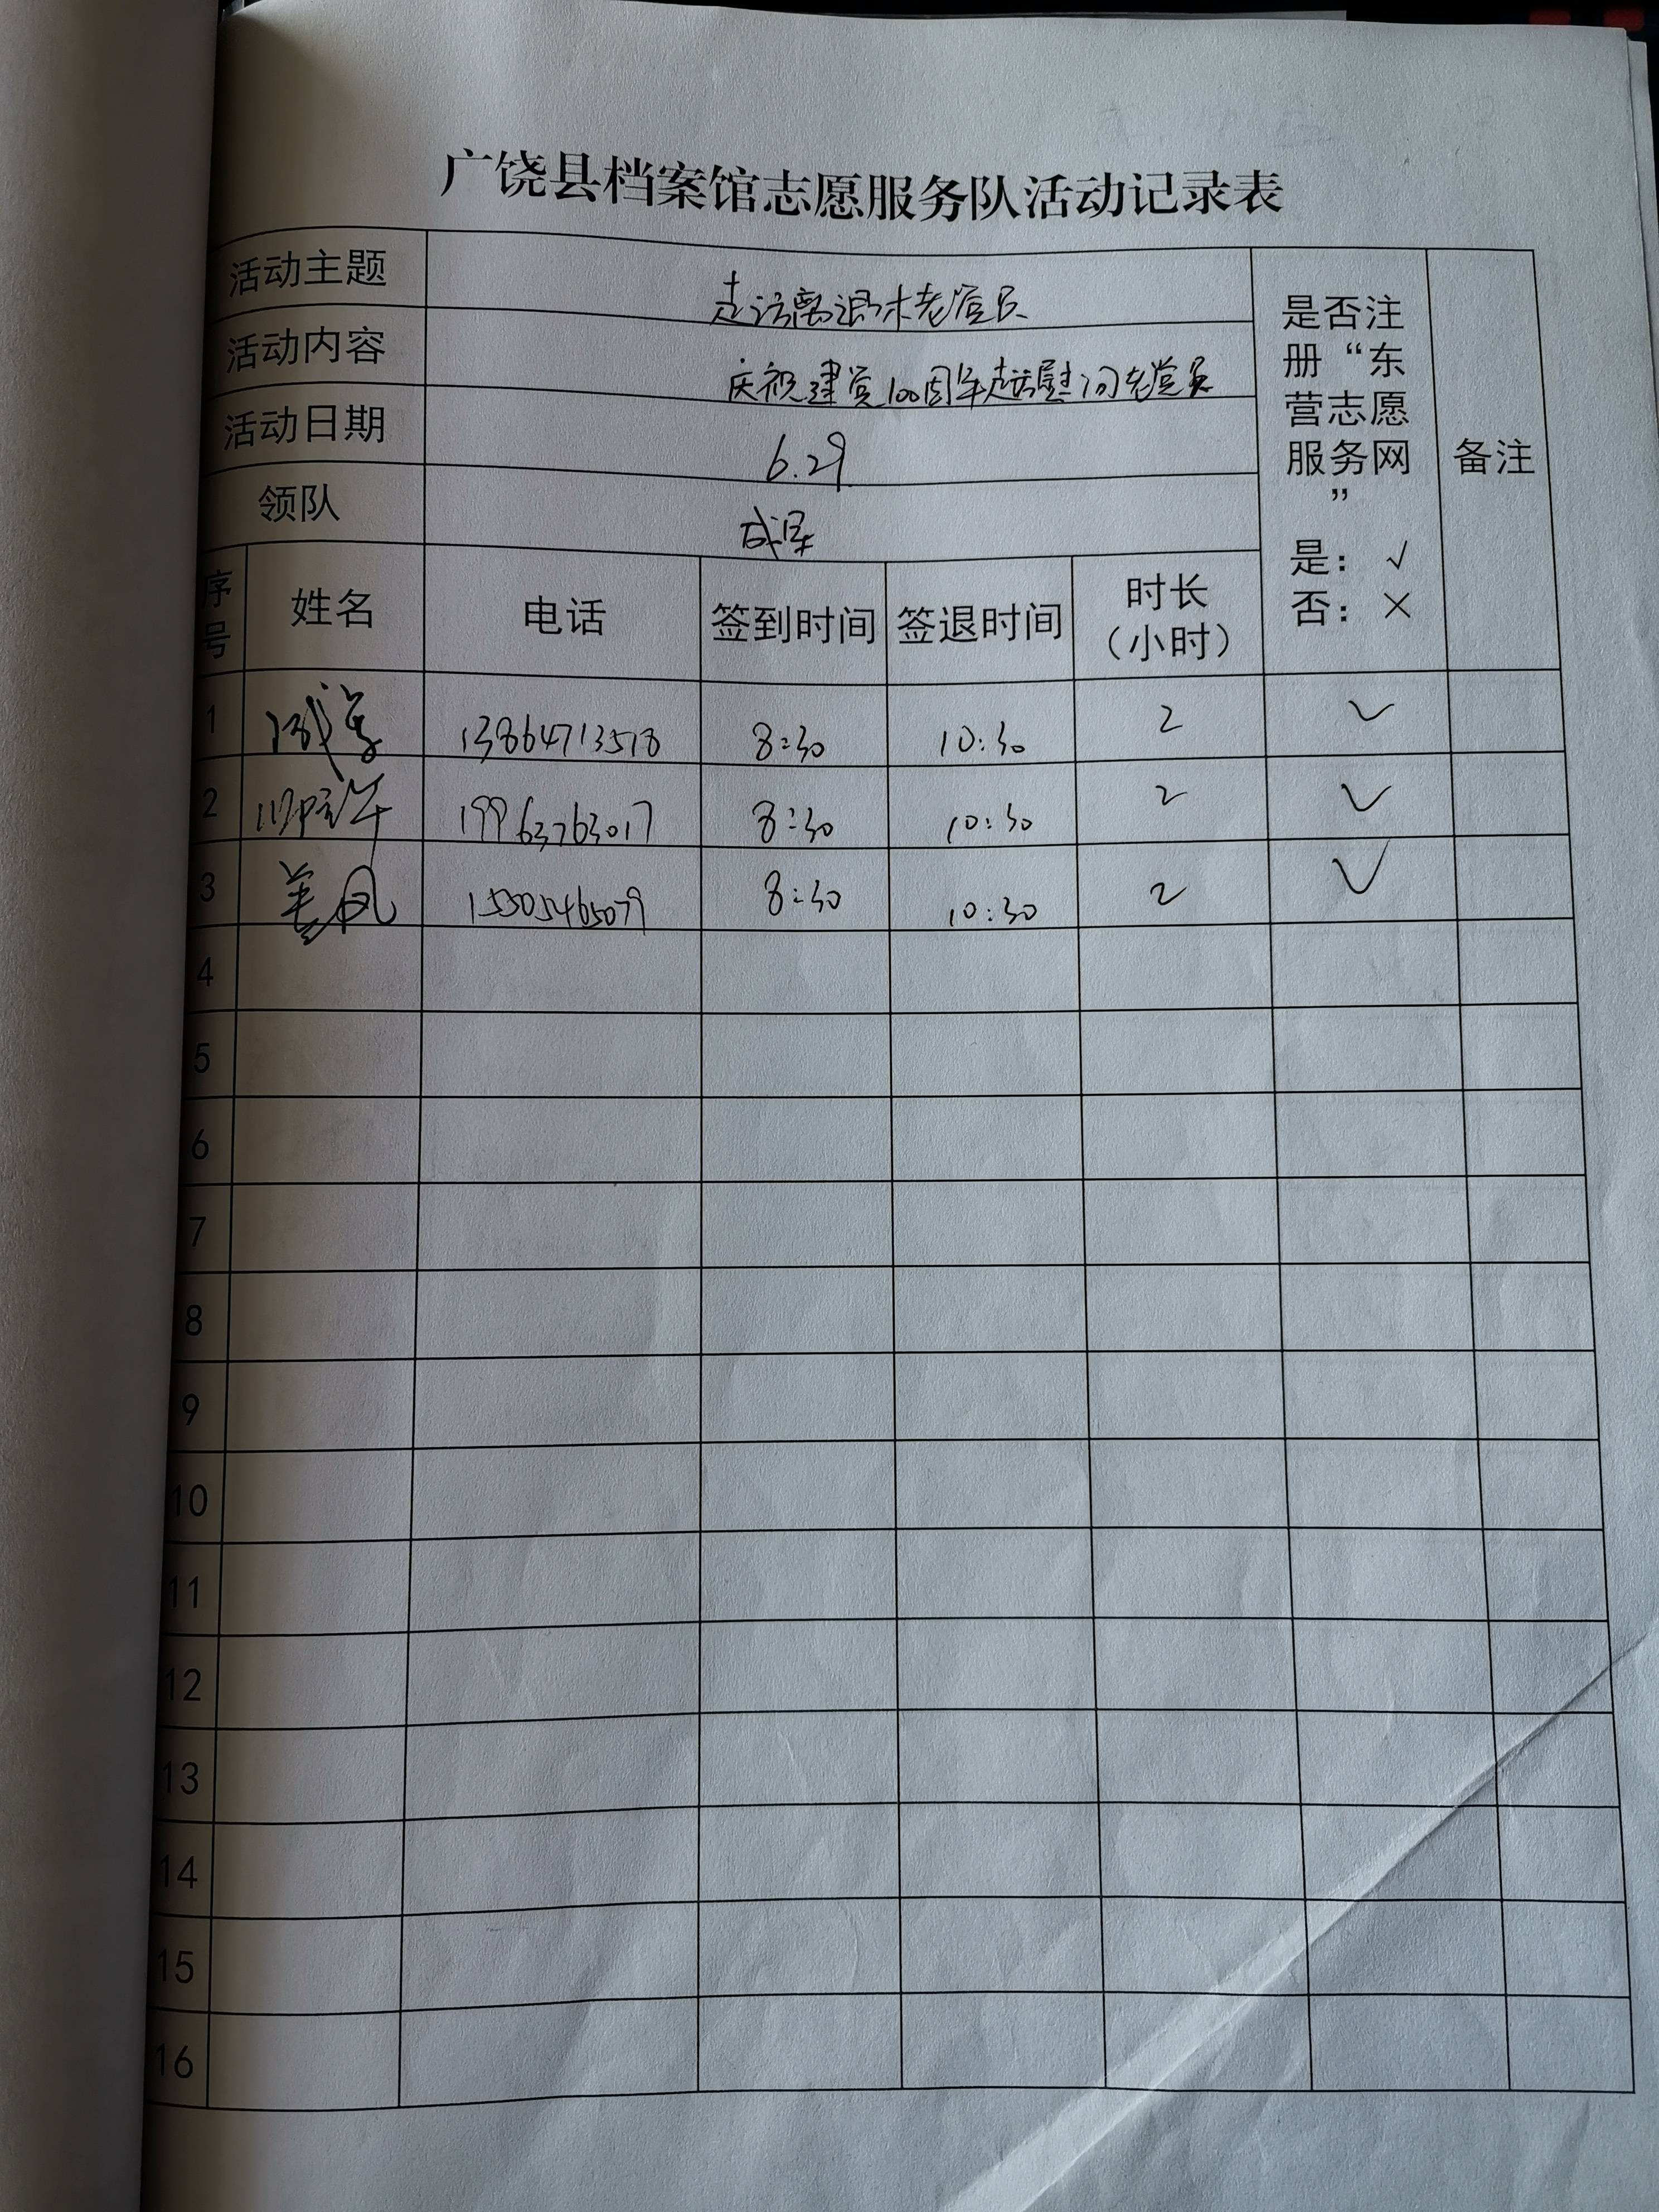 广饶县档案馆志愿服务队活动记录表
活动主题 走访离退休老党员
活动内容 庆祝建党100周年走访慰问老党员
活动日期 6.29
领队
是否注
册“东
营志愿
服务网
”
是：√
否：×
备注
序号 姓名 电话 签到时间 签退时间 时长（小时）
1 13864713518 8:30 10:30 2 ✓
2 19963763017 8:30 10:30 2 ✓
3 15505465079 8:30 10:30 2 ✓
4
5
6
7
8
9
10
11
12
13
14
15
16